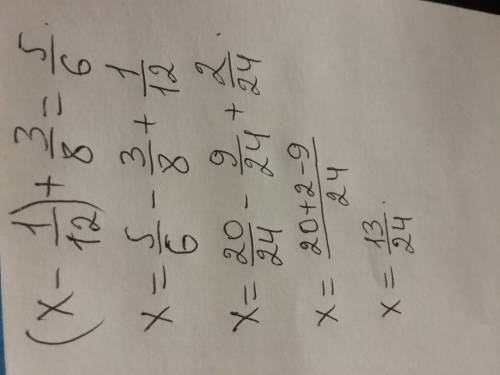 (x - 1/12) + 3/8 = 5/6
x = 5/6 - 3/8 + 1/12
x = 20/24 - 9/24 + 2/24
x = 20+2-9/24
x = 13/24